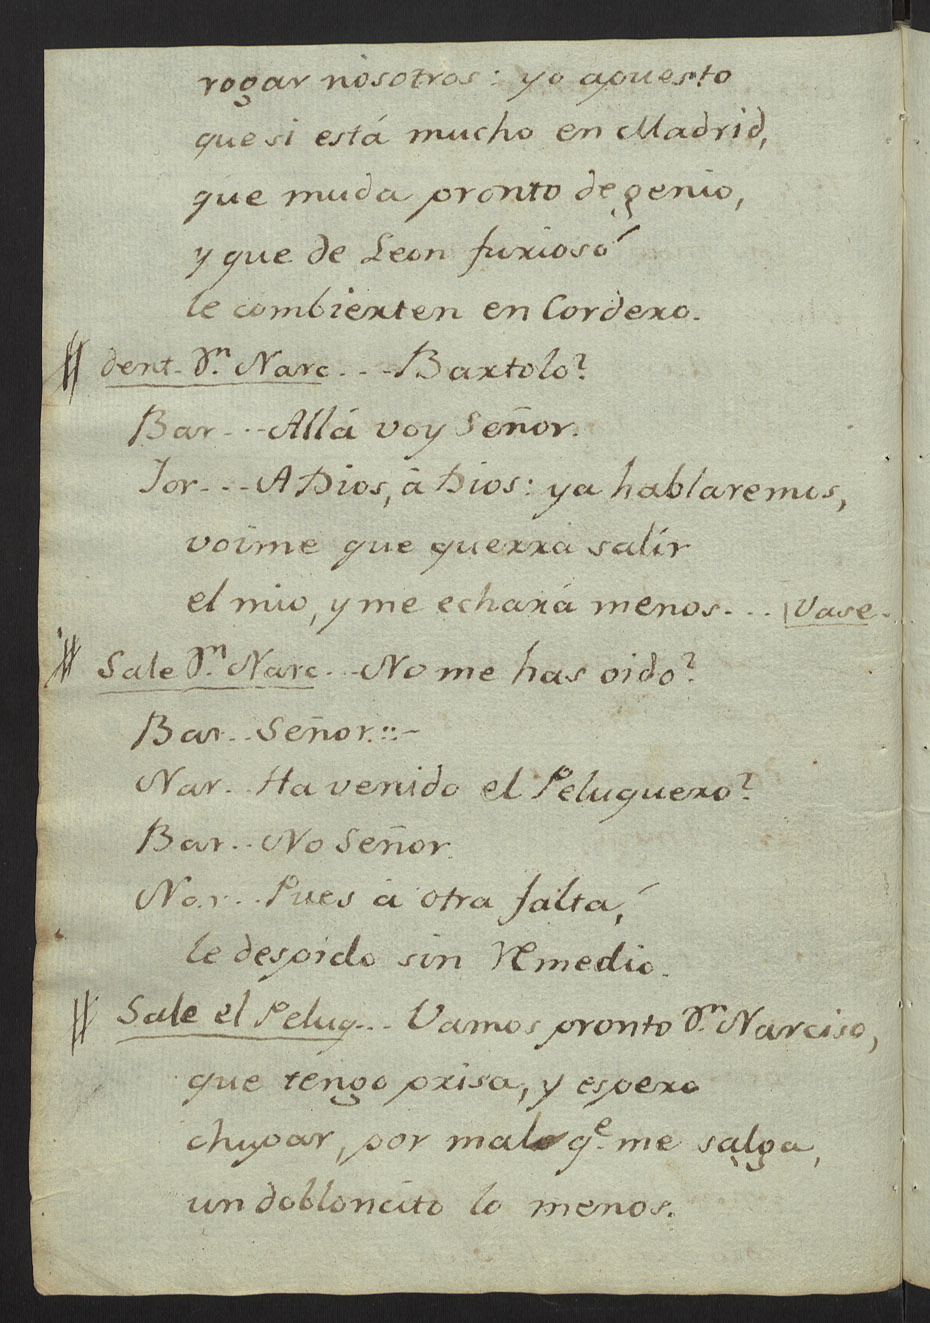 rogar nosotros: yo apuesto
que si está mucho en Madrid,
que muda pronto de genio,
y que de Leon furioso
le combierten en Cordero.
# dent. Dn. Narc. .. Bartolo?
Bar... Allá voy Señor.
Jor... A Dios, à Dios: ya hablaremos,
voime que querrá salir
el mio, y me echará menos... | Vase.
# Sale Dn. Narc. .. No me has oido?
Bar.. Señor.::-
Nar.. Ha venido el Peluquero?
Bar.. No Señor.
Nar... Pues à otra falta,
le despido sin Remedio.
# Sale el Peluq... Vamos pronto Dn. Narciso,
que tengo prisa, y espero
chupar, por malo qe. me salga,
un dobloncito lo menos.